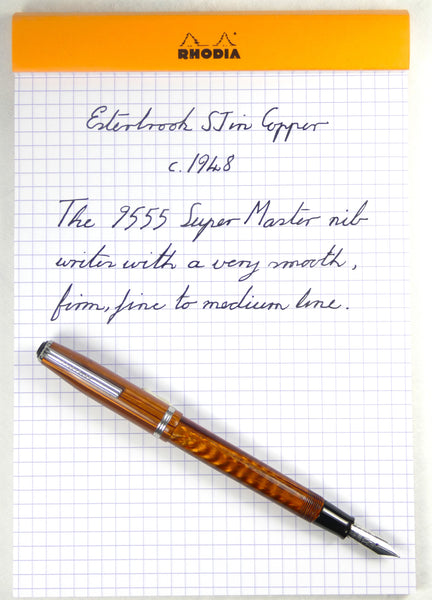 RHODIA
Esterbrook SJ in Copper
c. 1948
The 9555 Super Master nib
writes with a very smooth,
firm, fine to medium line.